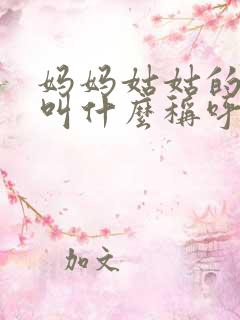 妈妈姑姑的
叫什麼稱呼
加文